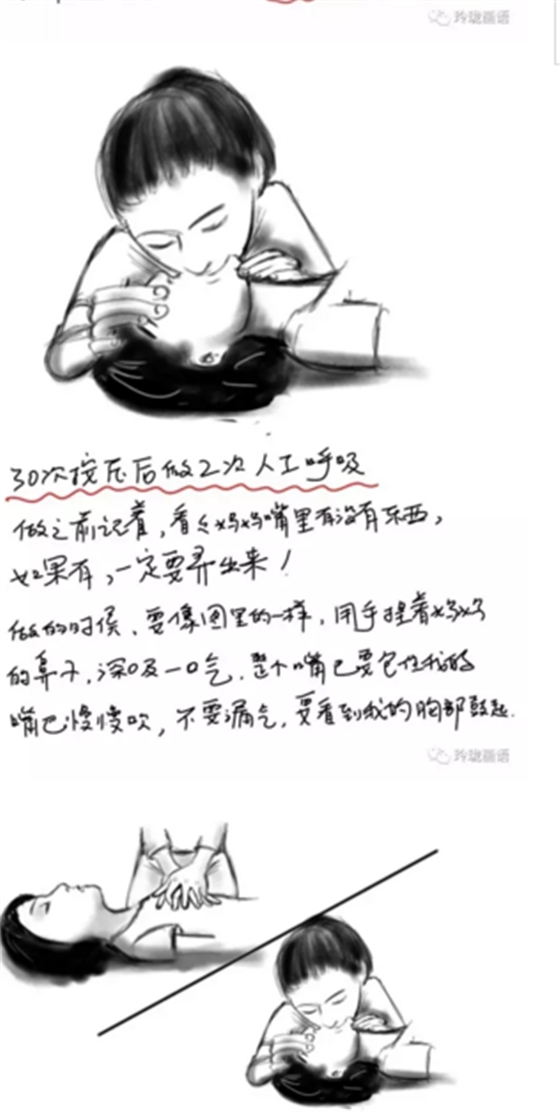 玲珑画语
30次按压后做2次人工呼吸
做之前记着，看看妈妈嘴里有没有东西，
如果有，一定要弄出来！
做的时候，要像图里的一样，用手捏着妈妈
的鼻子，深吸一口气，整个嘴巴要包住我的
嘴巴慢慢吹，不要漏气，要看到我的胸部鼓起.
玲珑画语